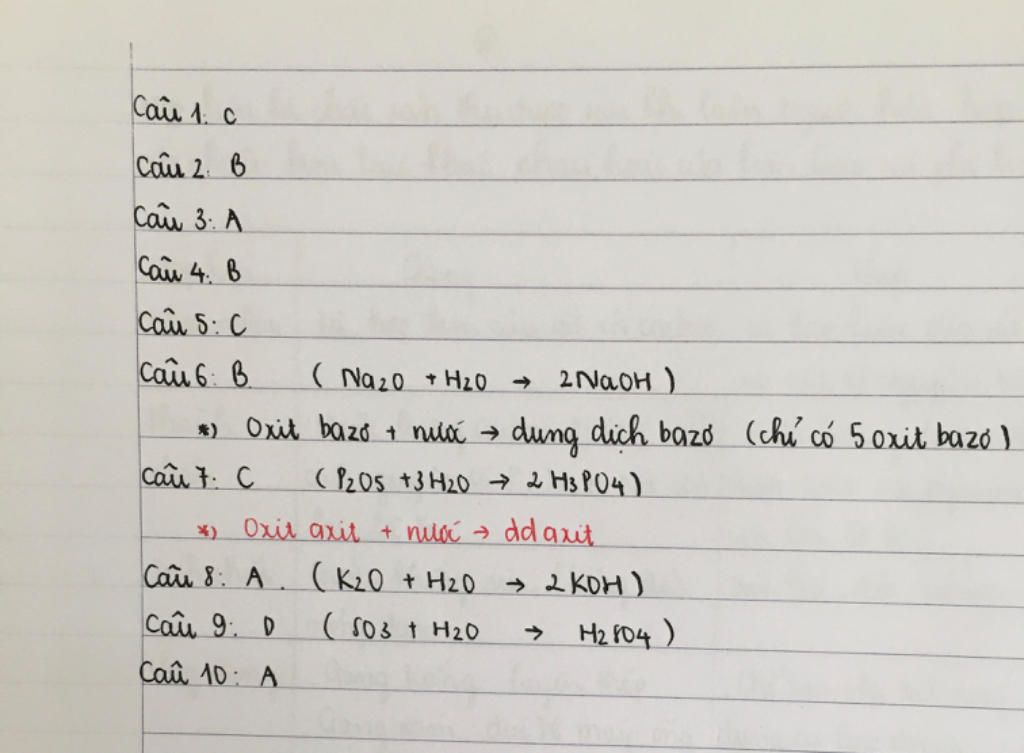 Câu 1: C
Câu 2: B
Câu 3: A
Câu 4: B
Câu 5: C
Câu 6: B (Na2O + H2O → 2NaOH)
*) Oxit bazơ + nước → dung dịch bazơ (chỉ có 5 oxit bazơ)
Câu 7: C (P2O5 + 3H2O → 2H3PO4)
*) Oxit axit + nước → dd axit
Câu 8: A. (K2O + H2O → 2KOH)
Câu 9: D (SO3 + H2O → H2SO4)
Câu 10: A